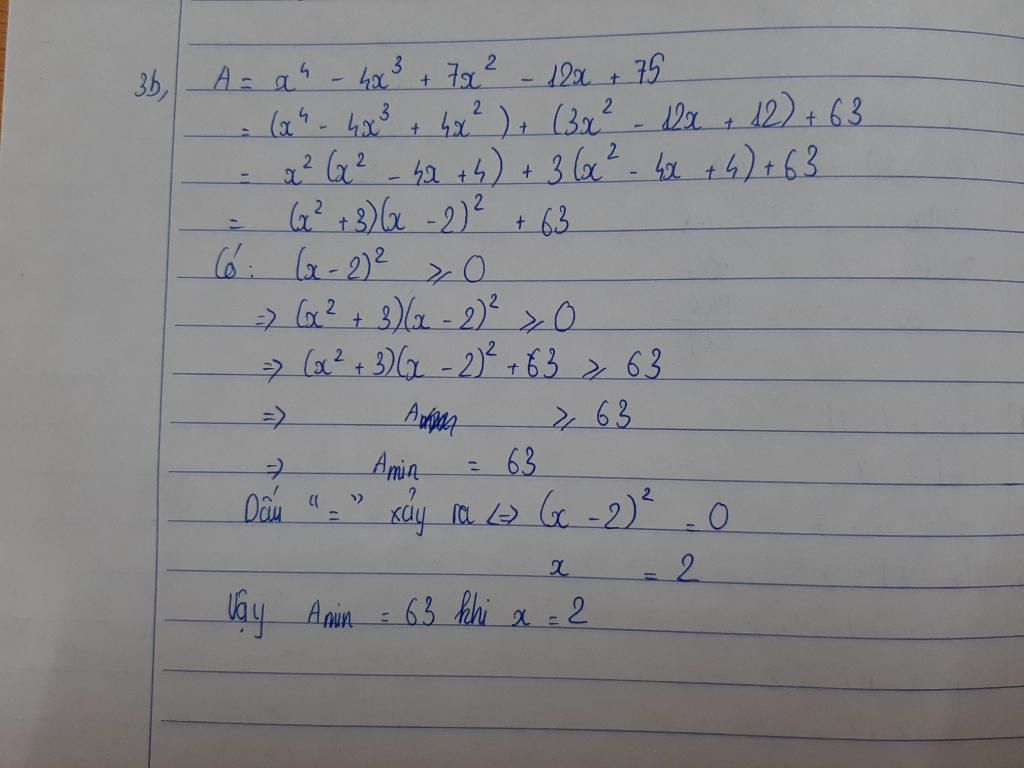 3b, A = x⁴ - 4x³ + 7x² - 12x + 75
= (x⁴ - 4x³ + 4x²) + (3x² - 12x + 12) + 63
= x² (x² - 4x + 4) + 3(x² - 4x + 4) + 63
= (x² + 3)(x - 2)² + 63
Có: (x - 2)² ≥ 0
=> (x² + 3)(x - 2)² ≥ 0
=> (x² + 3)(x - 2)² + 63 ≥ 63
=> A ≥ 63
=> Amin = 63
Dấu "=" xảy ra <=> (x - 2)² = 0
x = 2
Vậy Amin = 63 khi x = 2